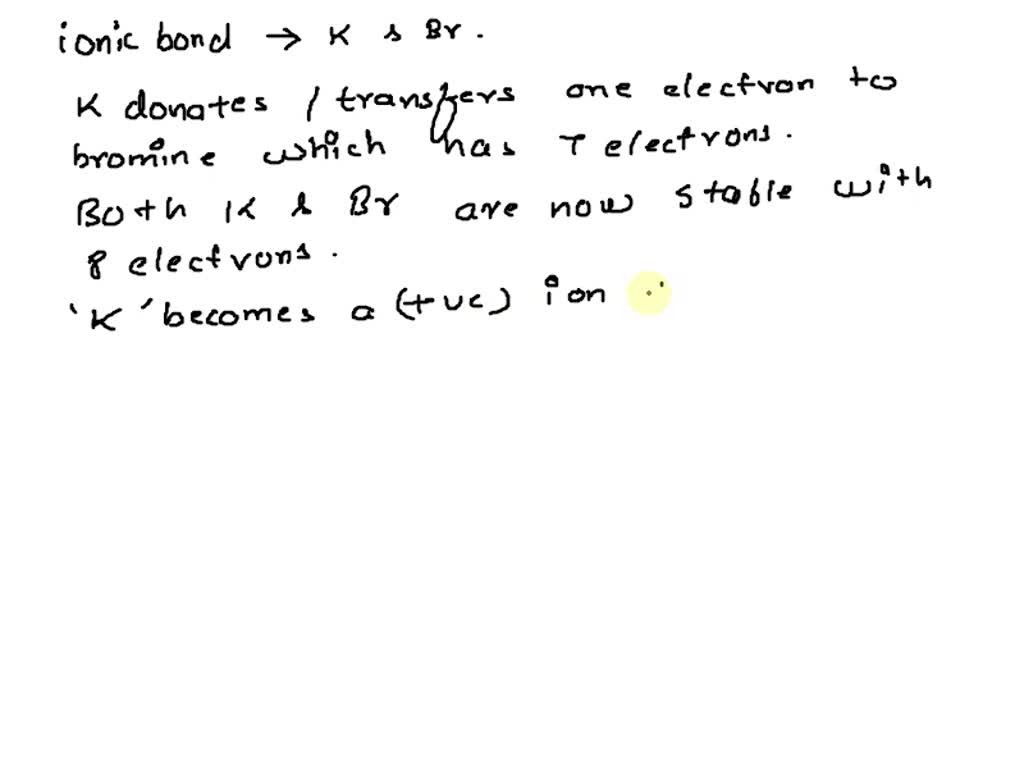 ionic bond → K & Br.
K donates / transfers one electron to
bromine which has 7 electrons.
Both K & Br are now stable with
8 electrons.
'K' becomes a (+ve) ion